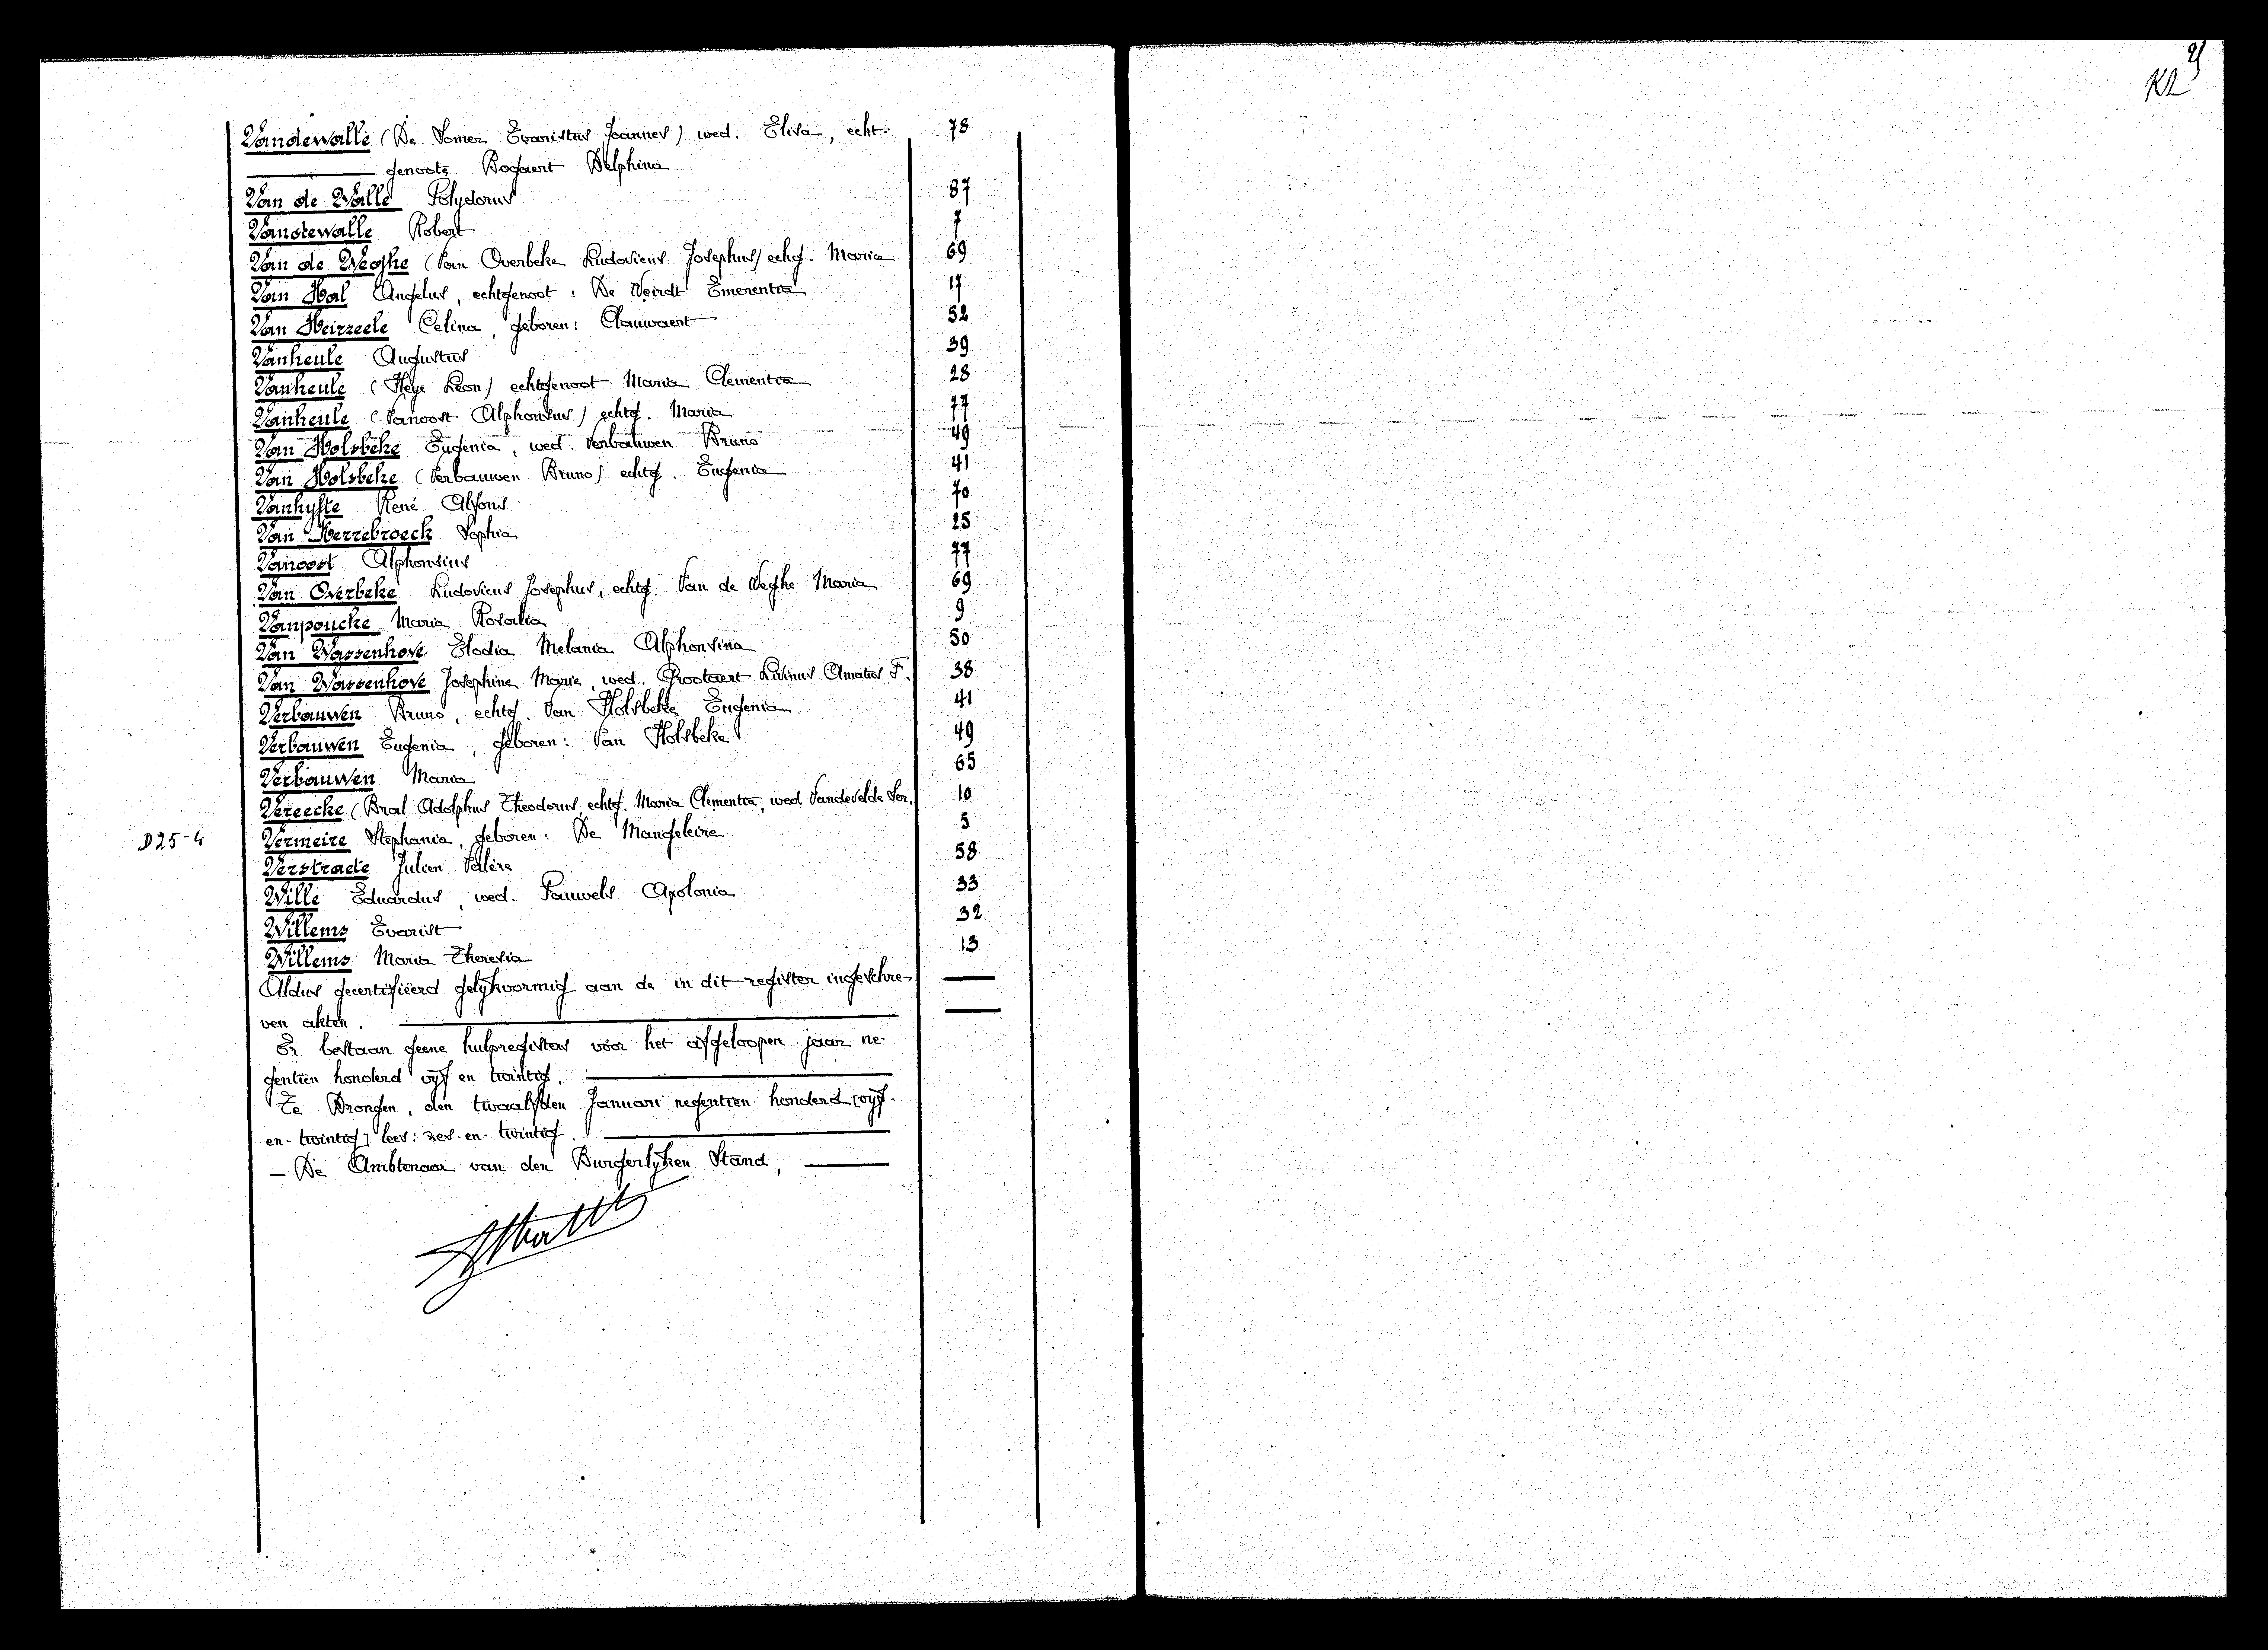 Vandewalle (De Somer Evaristus Joannes) wed. Elisa, echt- 78
genoote Bogaert Delphina
Van de Walle Polydorus 87
Vandewalle Robert 7
Van de Weghe (Van Overbeke Ludovicus Josephus) echtg. Maria 69
Van Hal Angelus, echtgenoot: De Weirdt Emerentia 17
Van Heirzeele Celina, geboren: Clauwaert 52
Vanheule Augustus 39
Vanheule (Heye Leon) echtgenoot Maria Clementia 28
Vanheule (Vanoost Alphonsus) echtg. Maria 77
Van Holsbeke Eugenia, wed. Verbauwen Bruno 49
Van Holsbeke (Verbauwen Bruno) echtg. Eugenia 41
Vanhyfte René Alfons 70
Van Kerrebroeck Sophia 25
Vanoost Alphonsius 77
Van Overbeke Ludovicus Josephus, echtg. Van de Weghe Maria 69
Vanpoucke Maria Rosalia 9
Van Wassenhove Elodia Melania Alphonsina 50
Van Wassenhove Josephine Marie, wed. Grootaert Livinus Amatus F. 38
Verbauwen Bruno, echtg. Van Holsbeke Eugenia 41
Verbauwen Eugenia, geboren: Van Holsbeke 49
Verbauwen Maria 65
Vereecke (Bral Adolphus Theodorus, echtg. Maria Clementia, wed. Vandevelde Ser. 10
D25-4 Vermeire Stephania, geboren: De Mangeleire 5
Verstraete Julien Valère 58
Wille Eduardus, wed. Pauwels Apolonia 33
Willems Evarist 32
Willems Maria Theresia 13
Aldus gecertifiëerd gelijkvormig aan de in dit register ingeschre-
ven akten.
Er bestaan geene hulpregisters voor het afgeloopen jaar ne-
gentien honderd vijf en twintig.
Te Drongen, den twaalfden Januari negentien honderd [vijf-
en-twintig] lees: zes-en-twintig.
— De Ambtenaar van den Burgerlijken Stand,